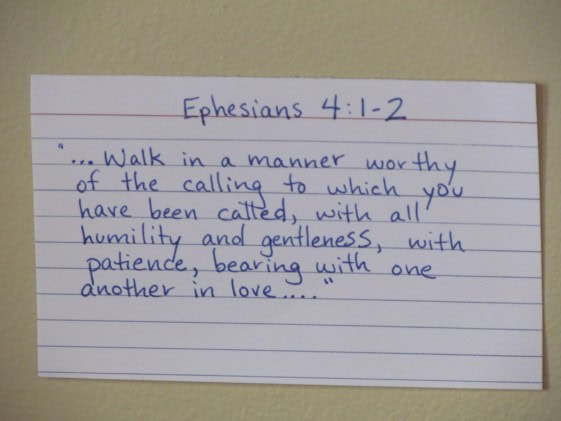 Ephesians 4:1-2
"... Walk in a manner worthy
of the calling to which you
have been called, with all
humility and gentleness, with
patience, bearing with one
another in love...."